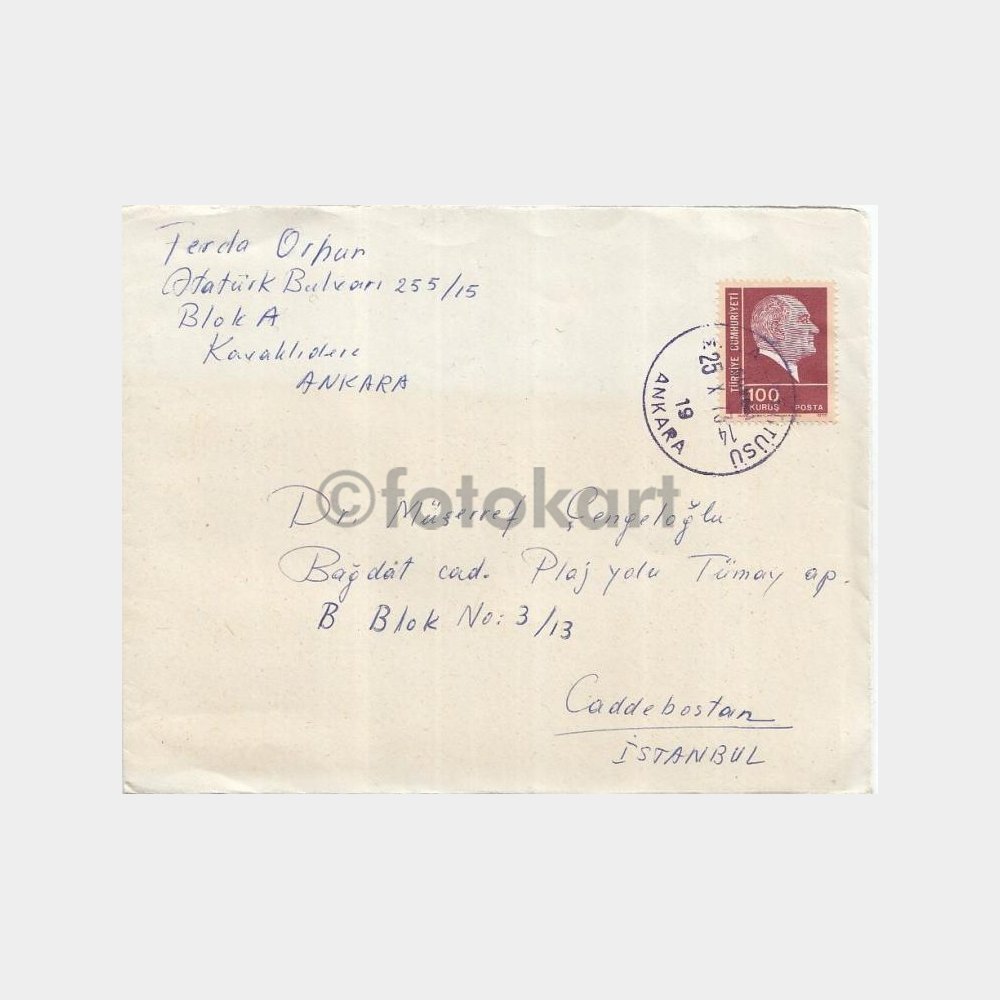 Ferda Orhun
Atatürk Bulvarı 255/15
Blok A
Kavaklıdere
ANKARA
TÜRKİYE CUMHURİYETİ
100
KURUŞ POSTA
25 X
14
19
ANKARA
©fotokart
Dr. Müşerref Çengeloğlu
Bağdât cad. Plaj yolu Tümay ap.
B Blok No: 3/13
Caddebostan
İSTANBUL